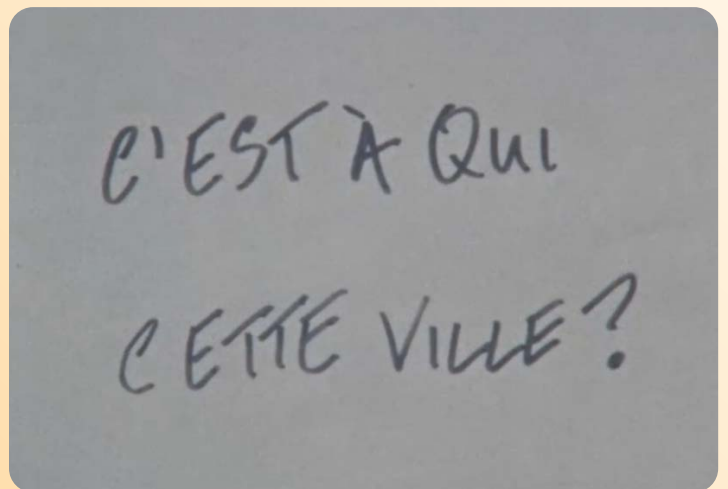 C'EST À QUI
CETTE VILLE?